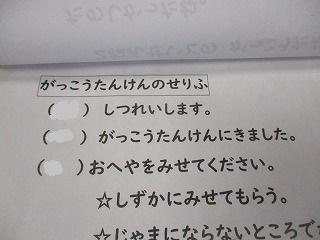 がっこうたんけんのせりふ
( ) しつれいします。
( ) がっこうたんけんにきました。
( ) おへやをみせてください。
☆しずかにみせてもらう。
☆じゃまにならないところで